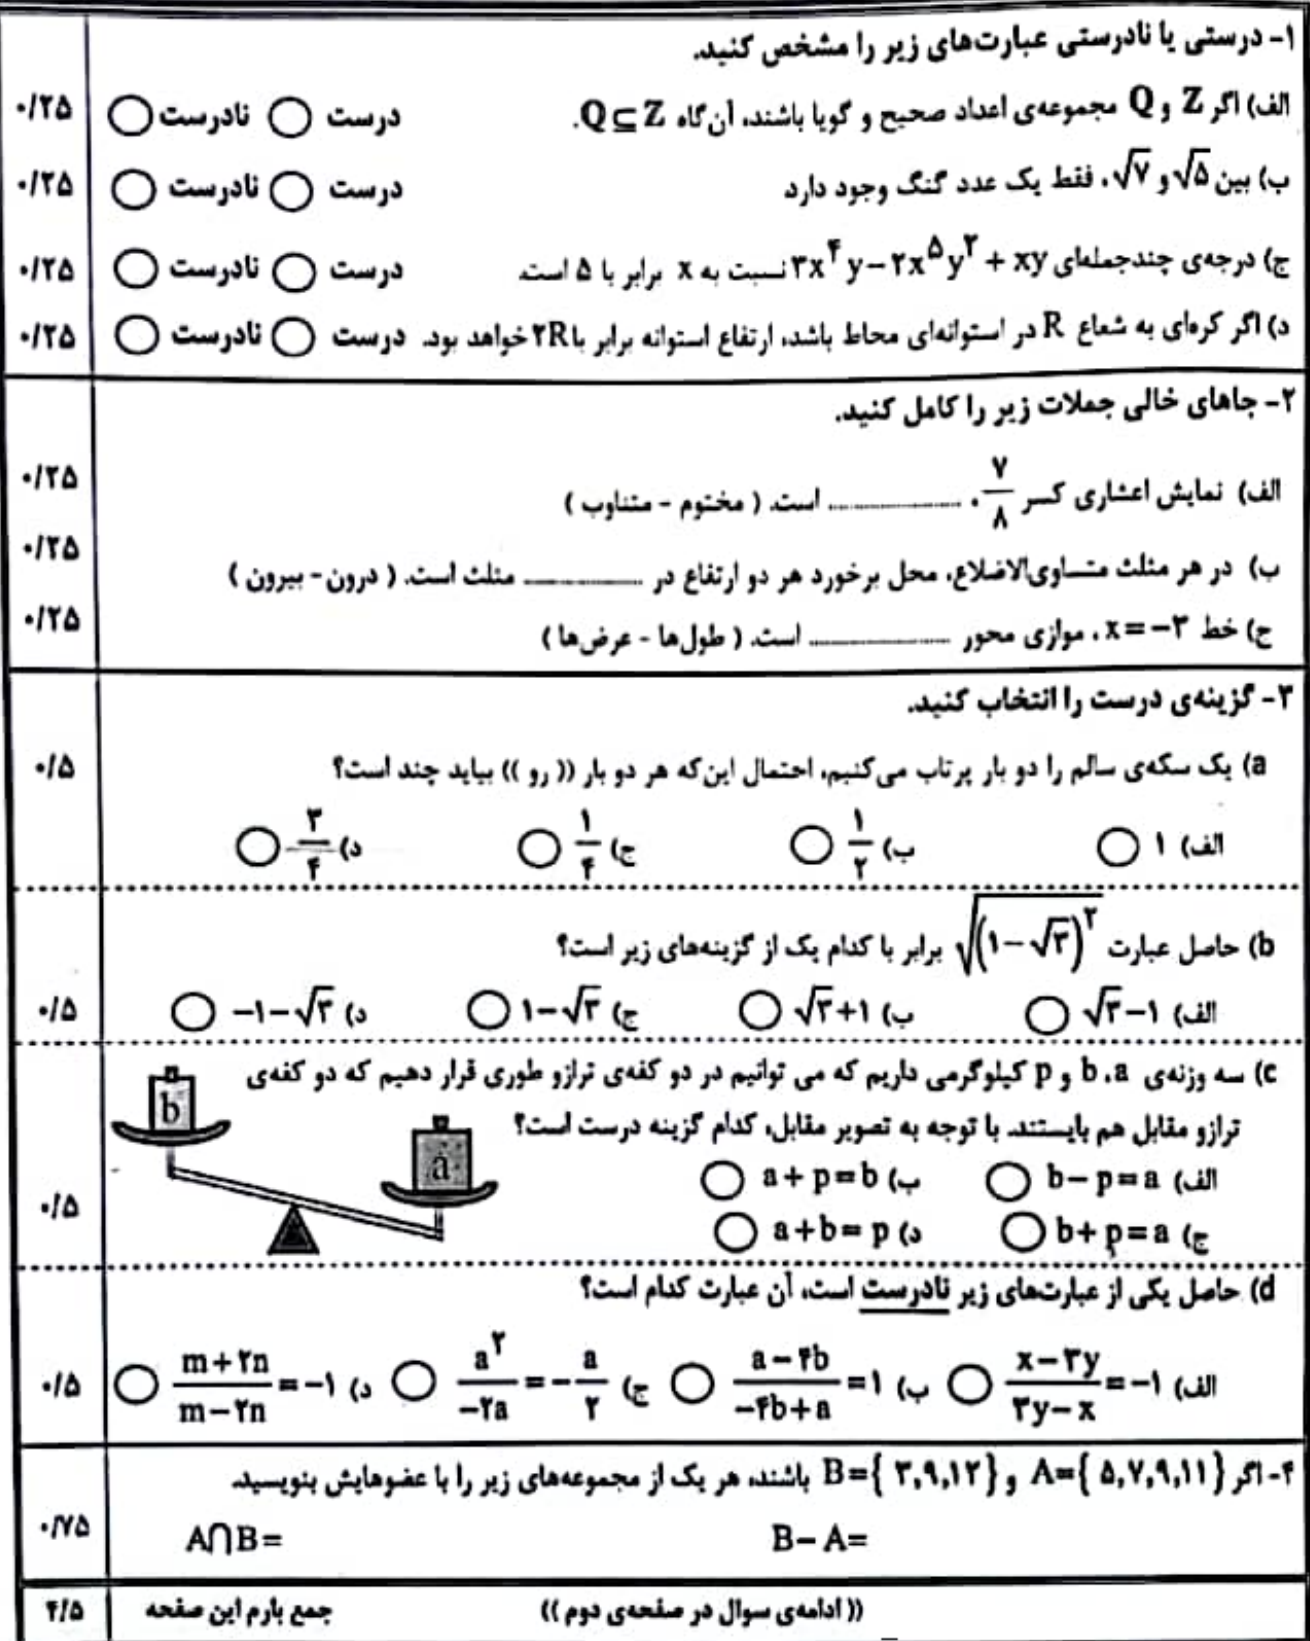 ۱- درستی یا نادرستی عبارت‌های زیر را مشخص کنید.
الف) اگر Z و Q مجموعه‌ی اعداد صحیح و گویا باشند، آن‌گاه Q⊆Z. درست نادرست ۰/۲۵
ب) بین √۵ و √۷، فقط یک عدد گنگ وجود دارد درست نادرست ۰/۲۵
ج) درجه‌ی چندجمله‌ای ۳x⁴y−۲x⁵y²+xy نسبت به x برابر با ۵ است. درست نادرست ۰/۲۵
د) اگر کره‌ای به شعاع R در استوانه‌ای محاط باشد، ارتفاع استوانه برابر با ۲R خواهد بود. درست نادرست ۰/۲۵
۲- جاهای خالی جملات زیر را کامل کنید.
الف) نمایش اعشاری کسر ۷/۸، .............. است. ( مختوم - متناوب ) ۰/۲۵
ب) در هر مثلث متساوی‌الاضلاع، محل برخورد هر دو ارتفاع در .............. مثلث است. ( درون - بیرون ) ۰/۲۵
ج) خط x=−۳، موازی محور .............. است. ( طول‌ها - عرض‌ها ) ۰/۲۵
۳- گزینه‌ی درست را انتخاب کنید.
a) یک سکه‌ی سالم را دو بار پرتاب می‌کنیم، احتمال این‌که هر دو بار (( رو )) بیاید چند است؟ ۰/۵
الف) ۱ ب) ۱/۲ ج) ۱/۴ د) ۳/۴
b) حاصل عبارت √(۱−√۳)² برابر با کدام یک از گزینه‌های زیر است؟
الف) √۳−۱ ب) √۳+۱ ج) ۱−√۳ د) −۱−√۳ ۰/۵
c) سه وزنه‌ی a، b و p کیلوگرمی داریم که می توانیم در دو کفه‌ی ترازو طوری قرار دهیم که دو کفه‌ی
ترازو مقابل هم بایستند. با توجه به تصویر مقابل، کدام گزینه درست است؟
b
a
الف) b−p=a ب) a+p=b
ج) b+p=a د) a+b=p ۰/۵
d) حاصل یکی از عبارت‌های زیر نادرست است، آن عبارت کدام است؟
الف) (x−۳y)/(۳y−x)=−۱ ب) (a−۴b)/(−۴b+a)=۱ ج) a²/−۲a=−a/۲ د) (m+۲n)/(m−۲n)=−۱ ۰/۵
۴- اگر A={ ۵,۷,۹,۱۱} و B={ ۳,۹,۱۲} باشند، هر یک از مجموعه‌های زیر را با عضوهایش بنویسید.
B−A= A∩B= ۰/۷۵
(( ادامه‌ی سوال در صفحه‌ی دوم )) جمع بارم این صفحه ۴/۵